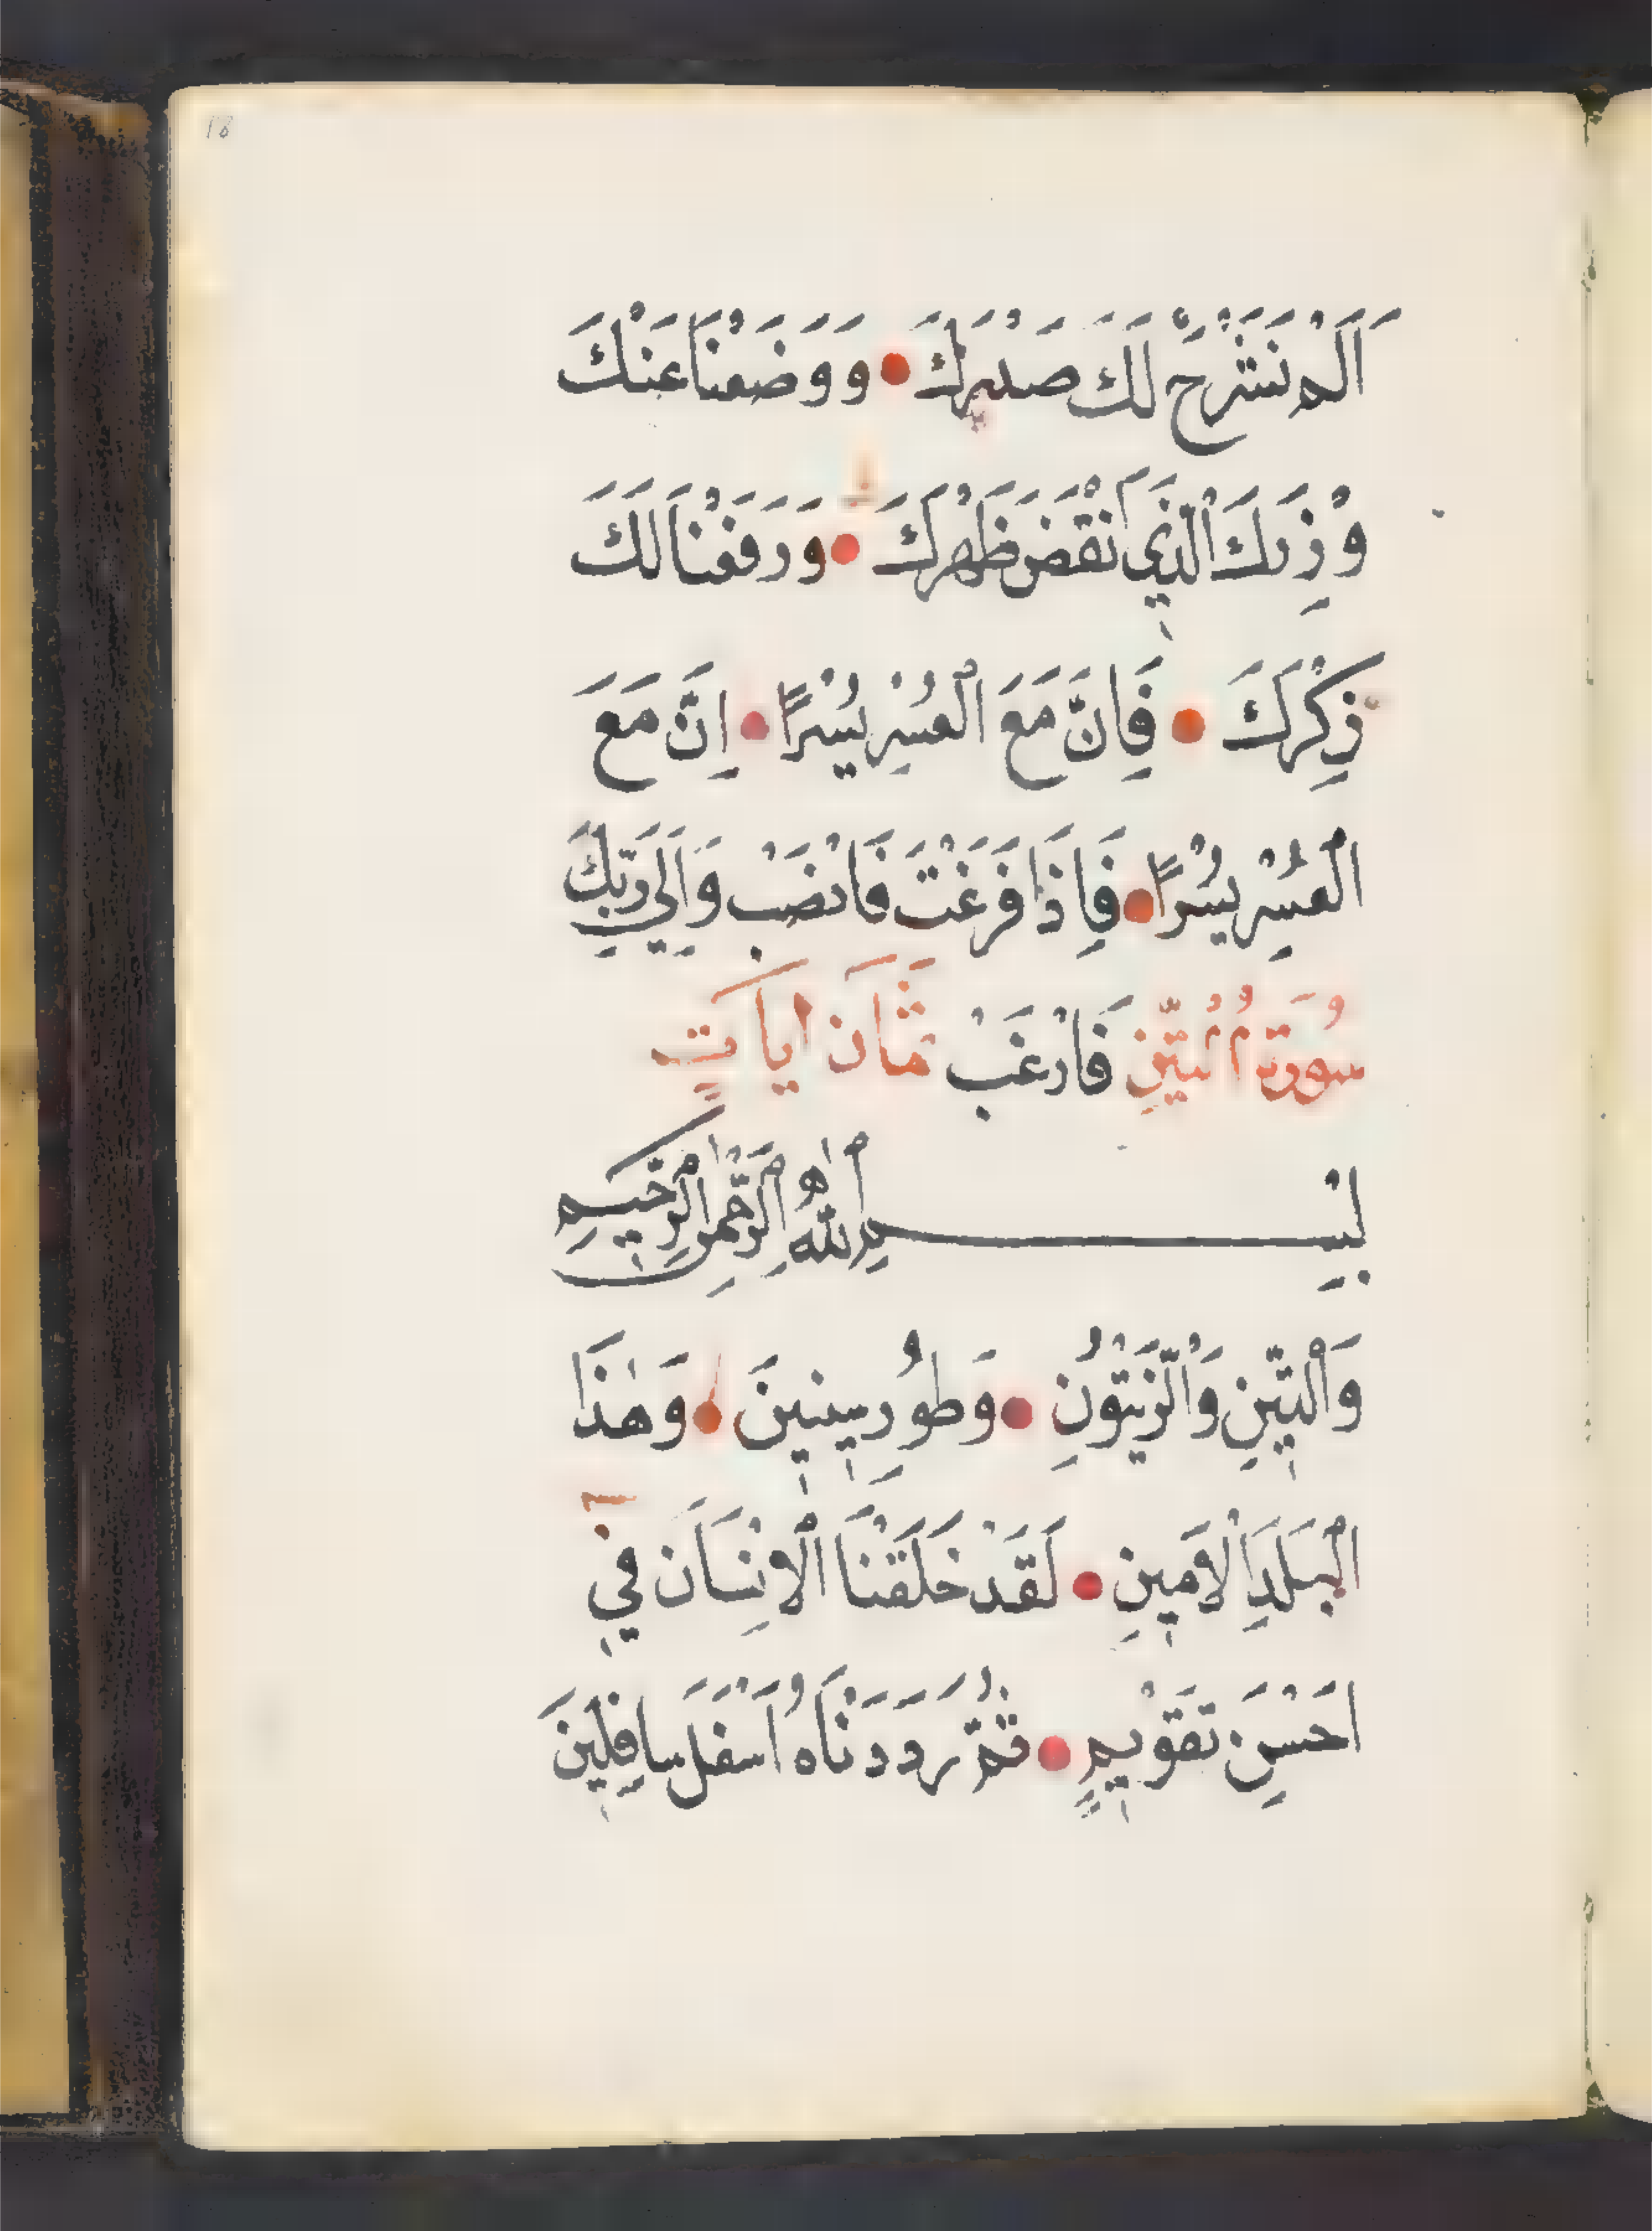 18
اَلَمْ نَشْرَحْ لَكَ صَدْرَكَ وَوَضَعْنَا عَنْكَ
وِزْرَكَ الَّذِي اَنْقَضَ ظَهْرَكَ وَرَفَعْنَا لَكَ
ذِكْرَكَ فَاِنَّ مَعَ الْعُسْرِ يُسْرًا اِنَّ مَعَ
الْعُسْرِ يُسْرًا فَاِذَا فَرَغْتَ فَانْصَبْ وَاِلَي رَبِّكَ
سُورَةُ التِّينِ فَارْغَبْ ثَمَانَ ايَاتٍ
بِسْمِ اللهِ الرَّحْمٰنِ الرَّحِيمِ
وَالتِّينِ وَالزَّيْتُونِ وَطُورِ سِينِينَ وَهٰذَا
الْبَلَدِ الْاَمِينِ لَقَدْ خَلَقْنَا الْاِنْسَانَ فِي
اَحْسَنِ تَقْوِيمٍ ثُمَّ رَدَدْنَاهُ اَسْفَلَ سَافِلِينَ